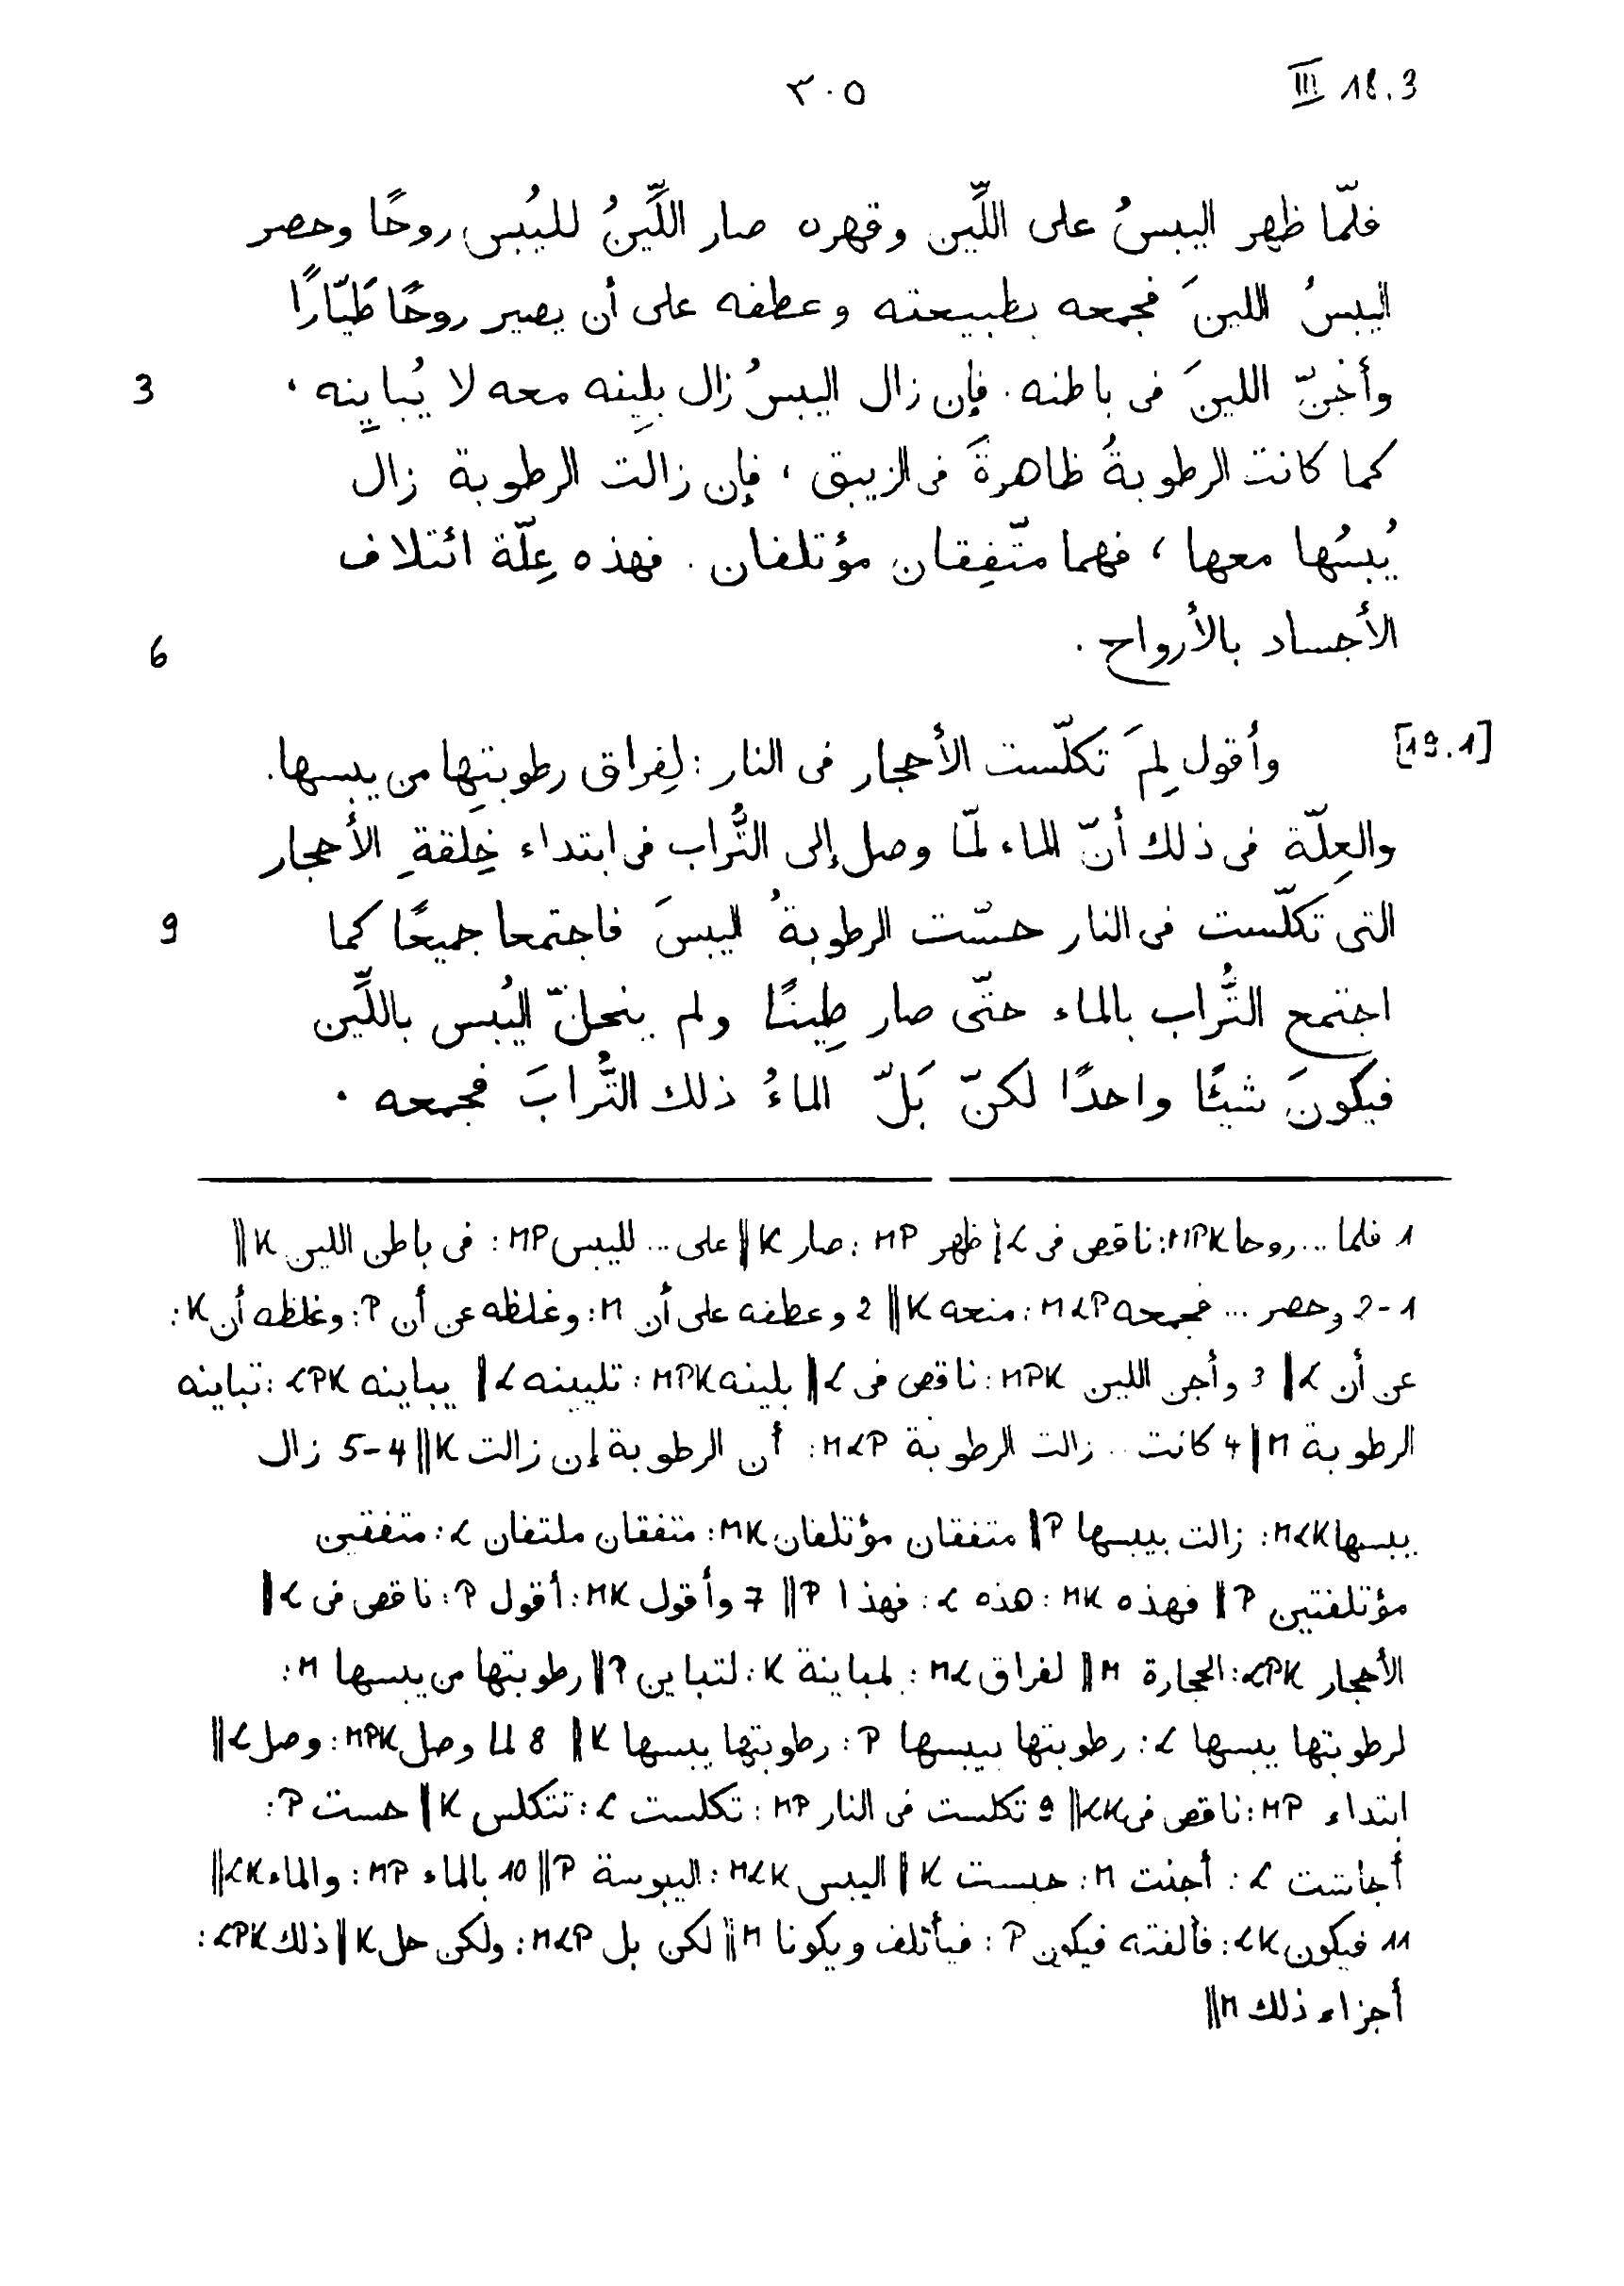 ٣٠٥ III 18.3
فلمّا ظهر اليبسُ على اللَّين وقهره صار اللَّينُ لليُبس روحًا وحصر
اليبسُ اللينَ فجمعه بطبيعته وعطفه على أن يصير روحًا طَيّارًا
3 وأجنّ اللينَ فى باطنه. فإن زال اليبسُ زال بلينه معه لا يُباينه،
كما كانت الرطوبةُ ظاهرةً فى الزيبق، فإن زالت الرطوبة زال
يُبسُها معها، فهما متّفِقان مؤتلفان. فهذه عِلّة ائتلاف
6 الأجساد بالأرواح.
[19.1] وأقول لِمَ تكلّست الأحجار فى النار: لِفراق رطوبتِها من يبسها.
والعِلّة فى ذلك أنّ الماء لمّا وصل إلى التُّراب فى ابتداء خِلقةِ الأحجار
9 التى تكلّست فى النار حسّت الرطوبةُ اليبسَ فاجتمعا جميعًا كما
اجتمع التُّراب بالماء حتّى صار طِينًا ولم ينحلّ اليُبس باللَّين
فيكونَ شيئًا واحدًا لكنّ بَلّ الماءُ ذلك التُّرابَ فجمعه.
1 فلما ... روحا MPK: ناقص فى L || ظهر MP: صار K || على ... لليبس MP: فى باطن اللين K ||
1-2 وحصر ... فجمعه MLP: منعه K || 2 وعطفه على أن M: وغلظه عن أن P: وغلظه أن K:
عن أن L || 3 وأجن اللين MPK: ناقص فى L || بلينه MPK: تليينه L || يباينه LPK: تباينه
الرطوبة M || 4 كانت ... زالت الرطوبة MLP: أن الرطوبة إن زالت K || 4-5 زال
يبسها MLK: زالت بيبسها P || متفقان مؤتلفان MK: متفقان ملتفان L: متفقين
مؤتلفتين P || فهذه MK: هذه L: فهذا P || 7 وأقول MK: أقول P: ناقص فى L ||
الأحجار LPK: الحجارة M || لفراق ML: لمباينة K: لتباين P || رطوبتها من يبسها M:
لرطوبتها يبسها L: رطوبتها بيبسها P: رطوبتها يبسها K || 8 لما وصل MPK: وصل L ||
ابتداء MP: ناقص فى LK || 9 تكلست فى النار MP: تكلست L: تتكلس K || حست P:
أجاست L: أجنت M: حبست K || اليبس MLK: اليبوسة P || 10 بالماء MP: والماء LK ||
11 فيكون LK: فألفته فيكون P: فيأتلف ويكونا M || لكن بل MLP: ولكن حل K || ذلك LPK:
أجزاء ذلك M ||